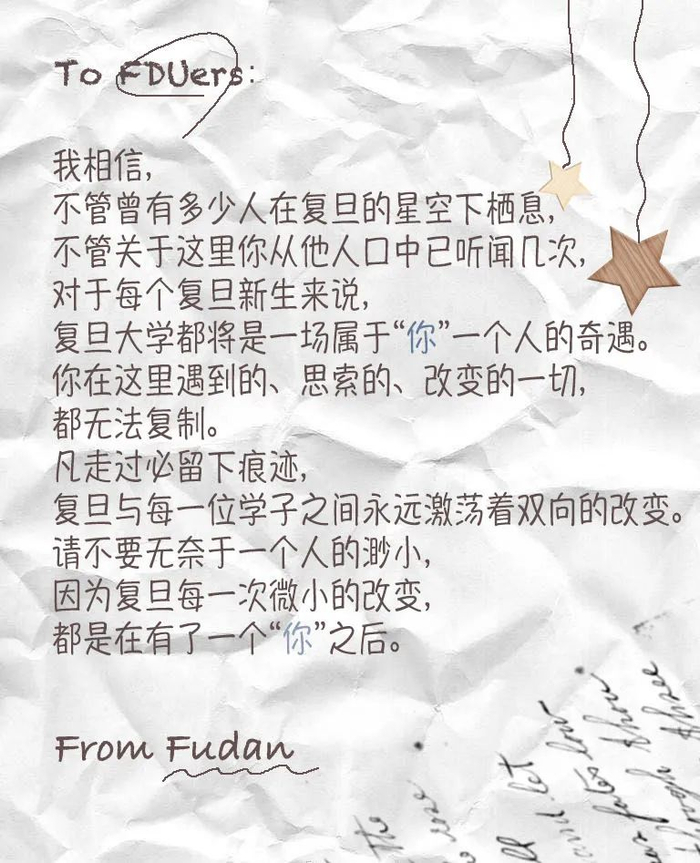 To FDUers:
我相信,
不管曾有多少人在复旦的星空下栖息,
不管关于这里你从他人口中已听闻几次,
对于每个复旦新生来说,
复旦大学都将是一场属于“你”一个人的奇遇。
你在这里遇到的、思索的、改变的一切,
都无法复制。
凡走过必留下痕迹,
复旦与每一位学子之间永远激荡着双向的改变。
请不要无奈于一个人的渺小,
因为复旦每一次微小的改变,
都是在有了一个“你”之后。
From Fudan